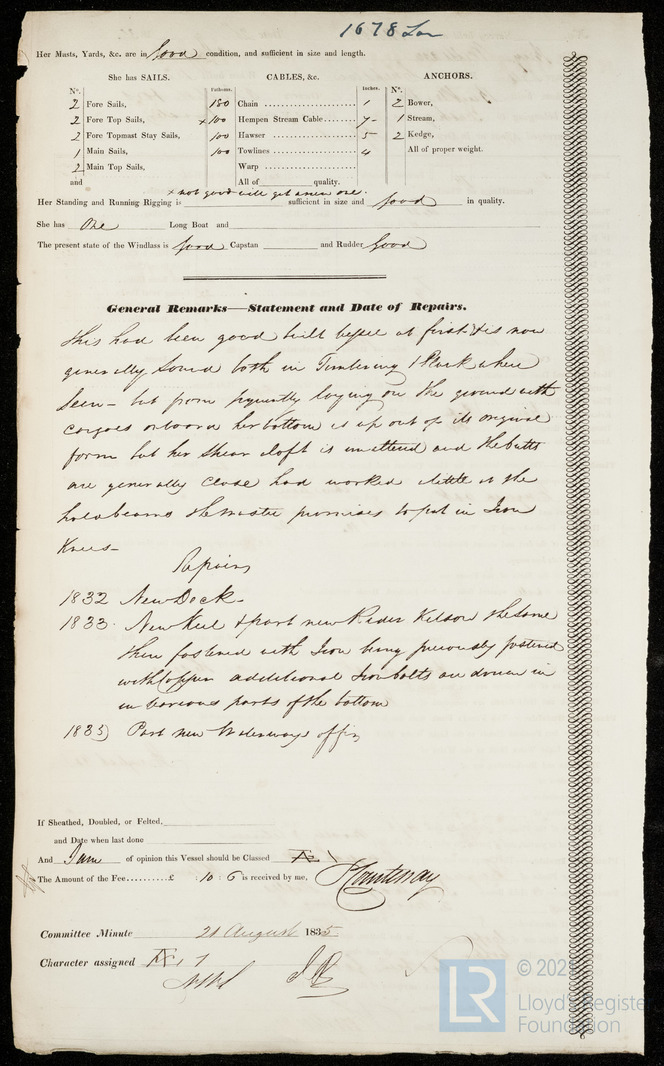 1678 Lon
Her Masts, Yards, &c. are in Good condition, and sufficient in size and length.
She has SAILS. CABLES, &c. ANCHORS.
Nº. Fathoms. Inches. Nº.
2 Fore Sails, 180 Chain 1 2 Bower,
2 Fore Top Sails, x 100 Hempen Stream Cable 7- 1 Stream,
2 Fore Topmast Stay Sails, 100 Hawser 5 2 Kedge,
1 Main Sails, 100 Towlines 4 All of proper weight.
2 Main Top Sails, Warp
and All of quality.
x not good will get a new one.
Her Standing and Running Rigging is sufficient in size and good in quality.
She has One Long Boat and
The present state of the Windlass is good Capstan and Rudder Good
General Remarks—Statement and Date of Repairs.
This had been good built vessel at first & is now
generally sound both in Timbering & Plank where
seen - but from frequently laying on the ground with
cargoes onboard her bottom is up out of its original
form but her shear aloft is unaltered and the butts
are generally close had worked a little at the
hold beams the master promises to put in Iron
Knees -
Repairs
1832 New Deck -
1833. New Keel & part new Kelson the same
then fastened with Iron being previously fastened
with Copper additional Iron bolts are driven in
in various parts of the bottom
1835 Part new Waterways
If Sheathed, Doubled, or Felted.
and Date when last done
And I am of opinion this Vessel should be Classed
The Amount of the Fee £ : 10 : 6 is received by me,
Committee Minute 21 August 1835
Character assigned
LR
© 202
Lloyd's Register
Foundation